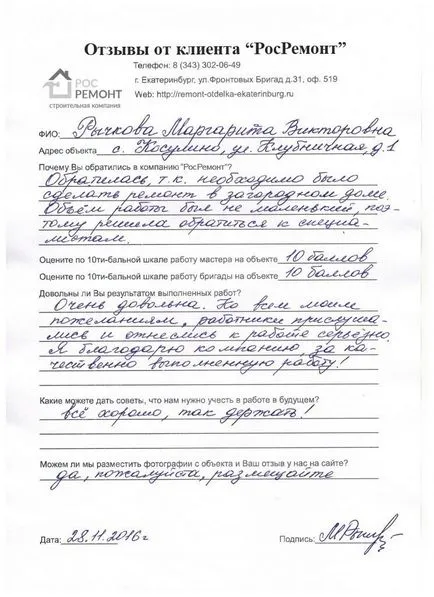 Отзывы от клиента “РосРемонт”
Телефон: 8 (343) 302-06-49
г. Екатеринбург, ул.Фронтовых Бригад д.31, оф. 519
Web: http://remont-otdelka-ekaterinburg.ru
РОС
РЕМОНТ
строительная компания
ФИО: Рычкова Маргарита Викторовна
Адрес объекта с. Косулино, ул. Клубничная, д.1
Почему Вы обратились в компанию "РосРемонт"?
Обратилась, т.к. необходимо было
сделать ремонт в загородном доме.
Объём работы был не маленький, поэ-
тому решила обратиться к специа-
листам.
Оцените по 10ти-бальной шкале работу мастера на объекте 10 баллов
Оцените по 10ти-бальной шкале работу бригады на объекте 10 баллов
Довольны ли Вы результатом выполненных работ?
Очень довольна. Ко всем моим
пожеланиям, работники прислуша-
лись и отнеслись к работе серьёзно.
Я благодарю компанию, за ка-
чественно выполненную работу!
Какие можете дать советы, что нам нужно учесть в работе в будущем?
всё хорошо, так держать!
Можем ли мы разместить фотографии с объекта и Ваш отзыв у нас на сайте?
да, пожалуйста, размещайте
Дата: 28.11.2016г
Подпись: